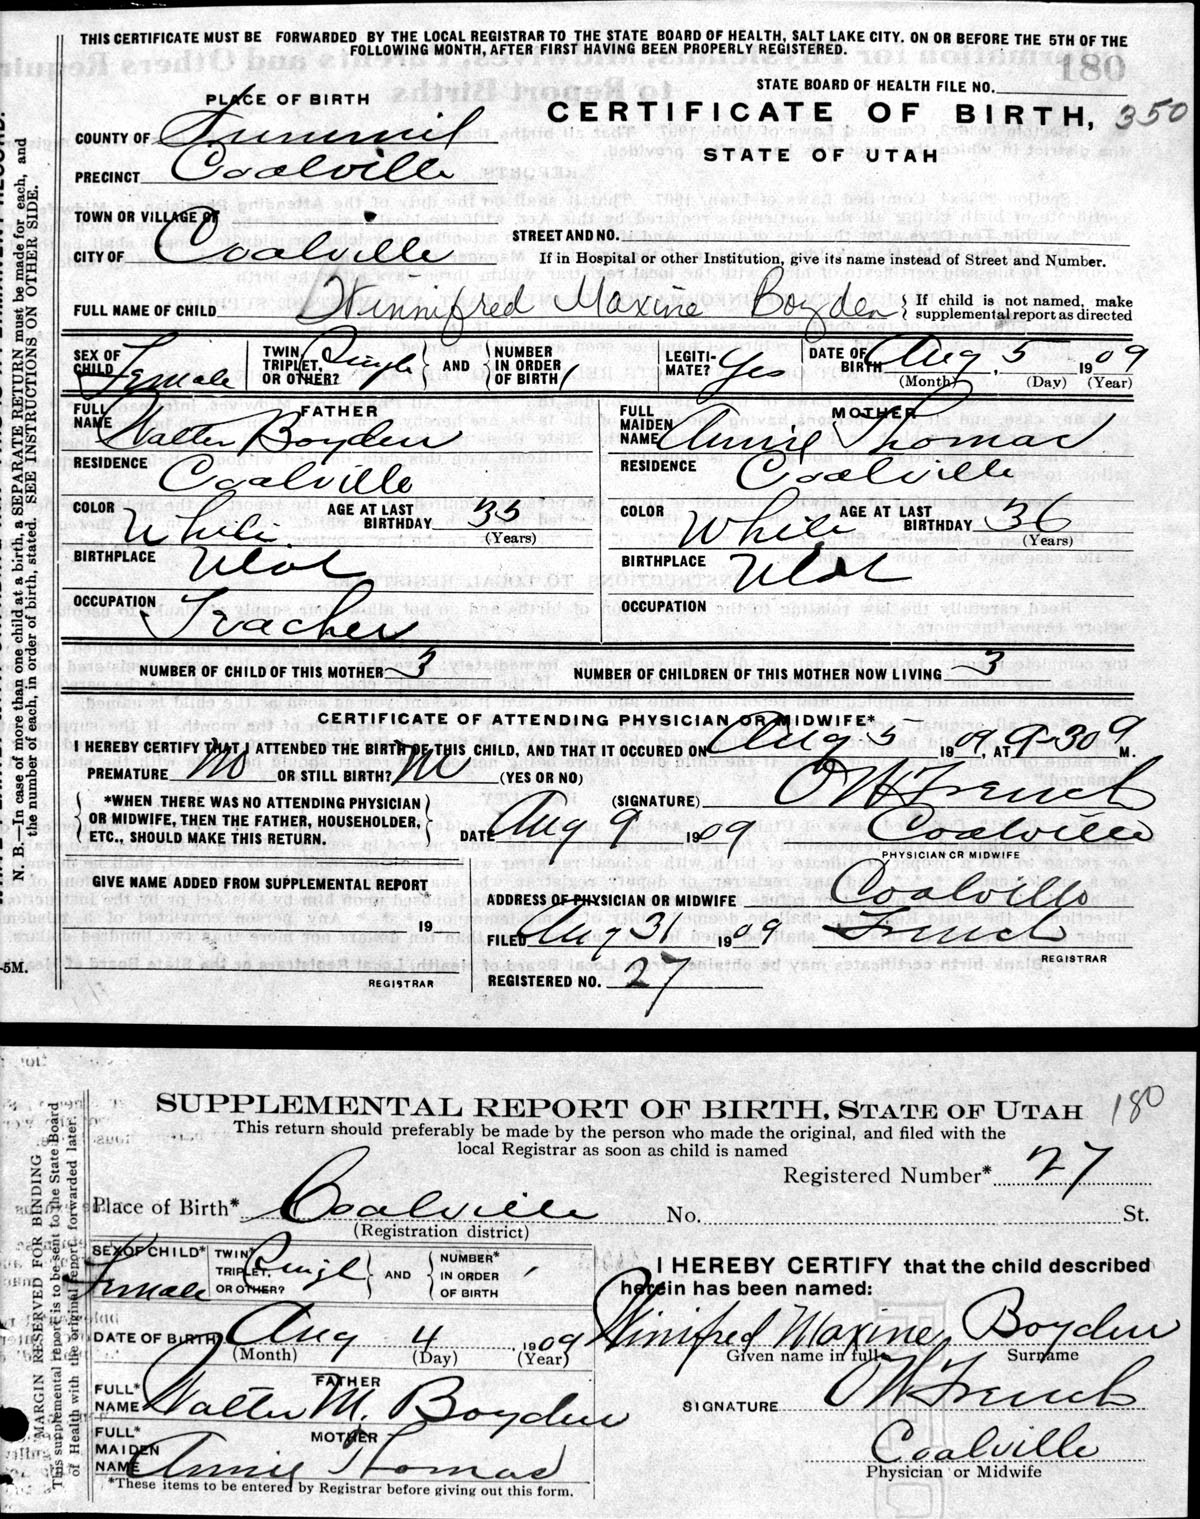 THIS CERTIFICATE MUST BE FORWARDED BY THE LOCAL REGISTRAR TO THE STATE BOARD OF HEALTH, SALT LAKE CITY. ON OR BEFORE THE 5TH OF THE
FOLLOWING MONTH, AFTER FIRST HAVING BEEN PROPERLY REGISTERED.
180
STATE BOARD OF HEALTH FILE NO.
PLACE OF BIRTH
CERTIFICATE OF BIRTH, 350
STATE OF UTAH
COUNTY OF Summit
PRECINCT Coalville
TOWN OR VILLAGE OF
STREET AND NO.
CITY OF Coalville
If in Hospital or other Institution, give its name instead of Street and Number.
FULL NAME OF CHILD Winnifred Maxine Boyden { If child is not named, make supplemental report as directed
SEX OF CHILD Female TWIN TRIPLET, OR OTHER? Single } AND { NUMBER IN ORDER OF BIRTH LEGITI-MATE? Yes DATE OF BIRTH Aug, 5 1909
(Month) (Day) (Year)
FATHER
FULL NAME Walter Boyden
RESIDENCE Coalville
COLOR White AGE AT LAST BIRTHDAY 35 (Years)
BIRTHPLACE Utah
OCCUPATION Teacher
MOTHER
FULL MAIDEN NAME Annie Thomas
RESIDENCE Coalville
COLOR White AGE AT LAST BIRTHDAY 36 (Years)
BIRTHPLACE Utah
OCCUPATION
NUMBER OF CHILD OF THIS MOTHER 3 NUMBER OF CHILDREN OF THIS MOTHER NOW LIVING 3
CERTIFICATE OF ATTENDING PHYSICIAN OR MIDWIFE*
I HEREBY CERTIFY THAT I ATTENDED THE BIRTH OF THIS CHILD, AND THAT IT OCCURED ON Aug. 5 1909, AT 9-30 M.
PREMATURE No OR STILL BIRTH? No (YES OR NO)
(SIGNATURE) O W French
{ *WHEN THERE WAS NO ATTENDING PHYSICIAN OR MIDWIFE, THEN THE FATHER, HOUSEHOLDER, ETC., SHOULD MAKE THIS RETURN. }
DATE Aug 9 1909 Coalville
PHYSICIAN OR MIDWIFE
GIVE NAME ADDED FROM SUPPLEMENTAL REPORT
19
REGISTRAR
ADDRESS OF PHYSICIAN OR MIDWIFE Coalville
FILED Aug 31 1909 French
REGISTRAR
REGISTERED NO. 27
N. B.—In case of more than one child at a birth, a SEPARATE RETURN must be made for each, and
the number of each, in order of birth, stated. SEE INSTRUCTIONS ON OTHER SIDE.
-5M.
SUPPLEMENTAL REPORT OF BIRTH, STATE OF UTAH 180
This return should preferably be made by the person who made the original, and filed with the
local Registrar as soon as child is named
Registered Number* 27
Place of Birth* Coalville No. St.
(Registration district)
SEX OF CHILD* Female TWIN* TRIPLET, OR OTHER? Single } AND { NUMBER* IN ORDER OF BIRTH
DATE OF BIRTH Aug 4 1909
(Month) (Day) (Year)
FATHER
FULL* NAME Walter M. Boyden
MOTHER
FULL* MAIDEN NAME Annie Thomas
*These items to be entered by Registrar before giving out this form.
I HEREBY CERTIFY that the child described
herein has been named:
Winifred Maxine Boyden
Given name in full Surname
SIGNATURE O W French
Coalville
Physician or Midwife
MARGIN RESERVED FOR BINDING
This supplemental report is to be sent to the State Board
of Health with the original report forwarded later.